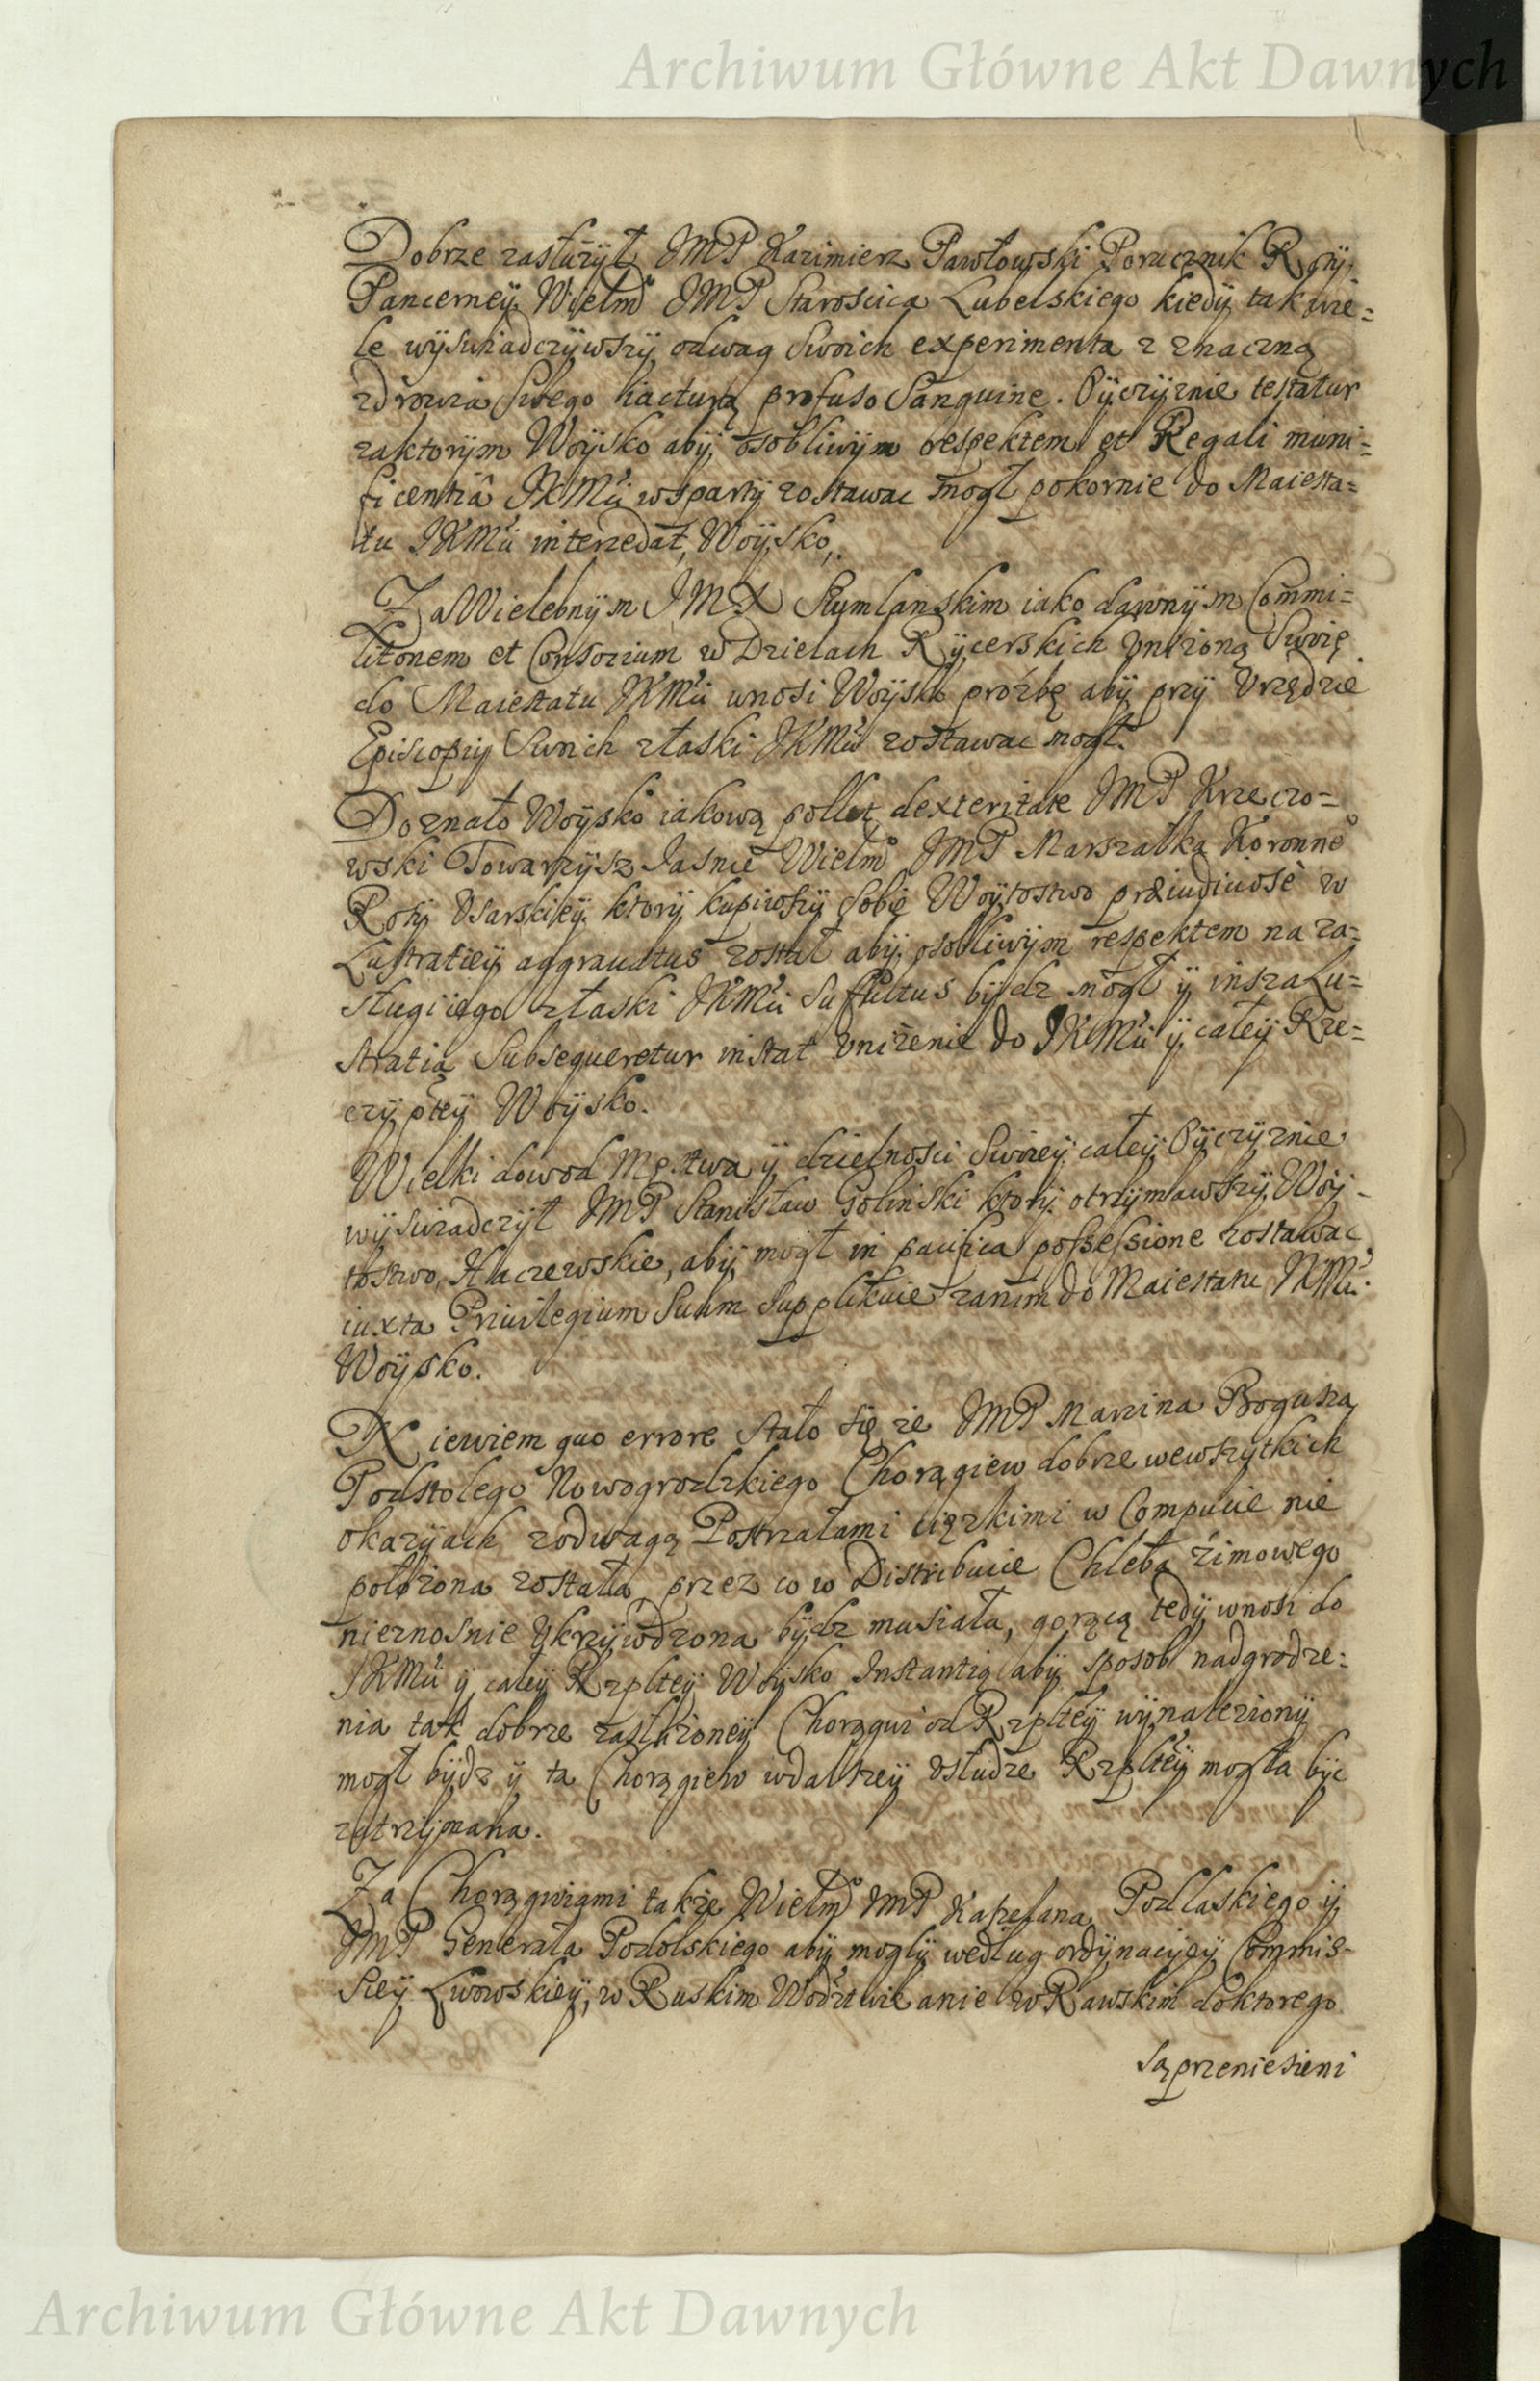 Archiwum Główne Akt Dawnych
Dobrze zasłużył JMP Kazimierz Pawłowski Porucznik Roty
Pancerney Wielmo JMP Starościca Lubelskiego kiedy tak wie=
le wyswiadczywszy odwag Swoich experimenta z znaczną
zdrowia Swego iacturą profuso Sanguine. Oyczyznie testatur
zaktorym Woysko aby osobliwym respektem et Regali muni=
ficentiâ JKMci wsparty zostawac mogł pokornie do Maiesta=
tu JKMci intercedat Woysko.
Za Wielebnym JMX Szumlanskim iako dawnym Commi=
litonem et Consocium w Dzielach Rycerskich vnizoną Swoię
do Maiestatu JKMci wnosi Woysko prozbę aby przy Vrzędzie
Episcopij Swoich złaski JKMci zostawac mogł.
Doznało Woysko iakową pollet dexteritate JMP Krzeczo=
wski Towarzysz Jasnie Wielmo JMP Marszałka Koronnego
Roty Vsarskiey ktory kupiwszy sobie Woytostwo præiudiciose w
Lustratiey aggrauatus został aby osobliwym respektem na za=
sługi iego złaski JKMci Suffultus bydz mogł y insza Lu=
stratia Subsequeretur instat vnizenie do JKMci y całey Rze=
czyptey Woysko.
Wielki dowod Męstwa y dzielnosci Swoiey całey Oyczyznie
wyswiadczył JMP Stanisław Golinski ktory otrzymawszy Woy-
tostwo Haczewskie, aby mogł in pacifica possessione zostawac
iuxta Priuilegium Suum Supplikuie zanim do Maiestatu JKMci
Woysko.
Niewiem quo errore stało się ze JMP Marcina Bogusza
Podstolego Nowogrodzkiego Chorągiew dobrze wewszytkich
okazyiach zodwagą Postrzałami cięzkimi w Compucie nie
połozona została, przez co w Distribucie Chleba zimowego
nieznosnie Vkrzywdzona bydz musiała, gorącą tedy wnosi do
JKMci y całey Rzpltey Woysko Instantią aby sposob nadgrodze=
nia tak dobrze zasłuzoney Chorągwi od Rzpltey wynaleziony
mogł bydz y ta Chorągiew wdalszey vsłudze Rzpltey mogła byc
zatrzymana.
Za Chorągwiami takze Wielmo JMP Kasztelana Podlaskiego y
JMP Generała Podolskiego aby mogły według ordynacyey Commis-
siey Lwowskiey, w Ruskim Wodztwie anie w Rawskim doktorego
Są przeniesieni
Archiwum Główne Akt Dawnych